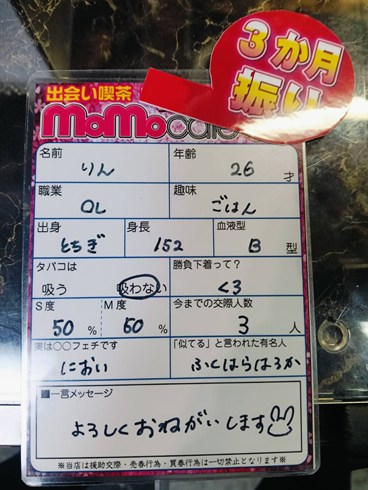 3か月
振り
出会い喫茶
MoMocafe
名前 年齢
りん 26才
職業 趣味
OL ごはん
出身 身長 血液型
とちぎ 152 B型
タバコは 勝負下着って?
吸う 吸わない <3
S度 M度 今までの交際人数
50% 60% 3人
実は○○フェチです 「似てる」と言われた有名人
におい ふくはらはるか
■一言メッセージ
よろしくおねがいします
※当店は援助交際・売春行為・買春行為は一切禁止となります※